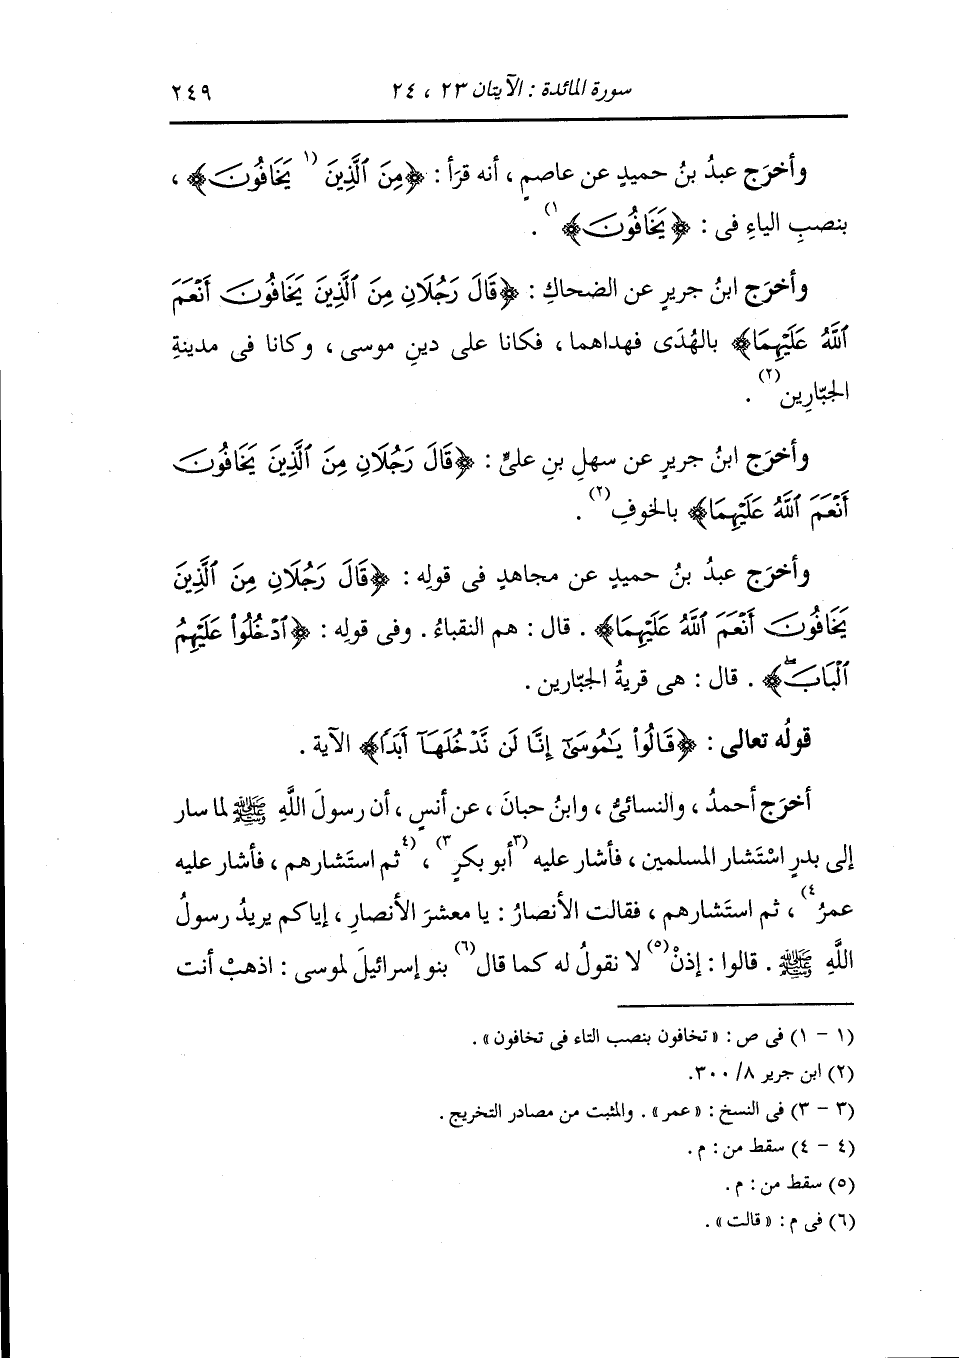 سورة المائدة : الآيتان ٢٣ ، ٢٤
٢٤٩
وأخرَج عبدُ بنُ حميدٍ عن عاصمٍ ، أنه قرَأ : ﴿مِنَ ٱلَّذِينَ (١ يَخَافُونَ﴾ ،
بنصبِ الياءِ فى : ﴿يَخَافُونَ﴾ ١) .
وأخرَج ابنُ جريرٍ عن الضحاكِ : ﴿قَالَ رَجُلَانِ مِنَ ٱلَّذِينَ يَخَافُونَ أَنْعَمَ
ٱللَّهُ عَلَيْهِمَا﴾ بالهُدَى فهداهما ، فكانا على دينِ موسى ، وكانا فى مدينةِ
الجبّارِين(٢) .
وأخرَج ابنُ جريرٍ عن سهلِ بنِ علىٍّ : ﴿قَالَ رَجُلَانِ مِنَ ٱلَّذِينَ يَخَافُونَ
أَنْعَمَ ٱللَّهُ عَلَيْهِمَا﴾ بالخوفِ(٢) .
وأخرَج عبدُ بنُ حميدٍ عن مجاهدٍ فى قولِه : ﴿قَالَ رَجُلَانِ مِنَ ٱلَّذِينَ
يَخَافُونَ أَنْعَمَ ٱللَّهُ عَلَيْهِمَا﴾ . قال : هم النقباءُ . وفى قولِه : ﴿ٱدْخُلُواْ عَلَيْهِمُ
ٱلْبَابَۖ﴾ . قال : هى قريةُ الجبّارين .
قولُه تعالى : ﴿قَالُواْ يَٰمُوسَىٰٓ إِنَّا لَن نَّدْخُلَهَآ أَبَدًا﴾ الآية .
أخرَج أحمدُ ، والنسائىُّ ، وابنُ حبانَ ، عن أنسٍ ، أن رسولَ اللَّهِ ﷺ لما سار
إلى بدرٍ اسْتَشار المسلمين ، فأشار عليه (٣أبو بكرٍ٣) ، (٤ثم استَشارهم ، فأشار عليه
عمرُ٤) ، ثم استشارهم ، فقالت الأنصارُ : يا معشرَ الأنصارِ ، إياكم يريدُ رسولُ
اللَّهِ ﷺ . قالوا : إذنْ(٥) لا نقولُ له كما قال(٦) بنو إسرائيلَ لموسى : اذهبْ أنت
(١ - ١) فى ص : « تخافون بنصب التاء فى تخافون » .
(٢) ابن جرير ٨/ ٣٠٠.
(٣ - ٣) فى النسخ : « عمر » . والمثبت من مصادر التخريج .
(٤ - ٤) سقط من : م .
(٥) سقط من : م .
(٦) فى م : « قالت » .